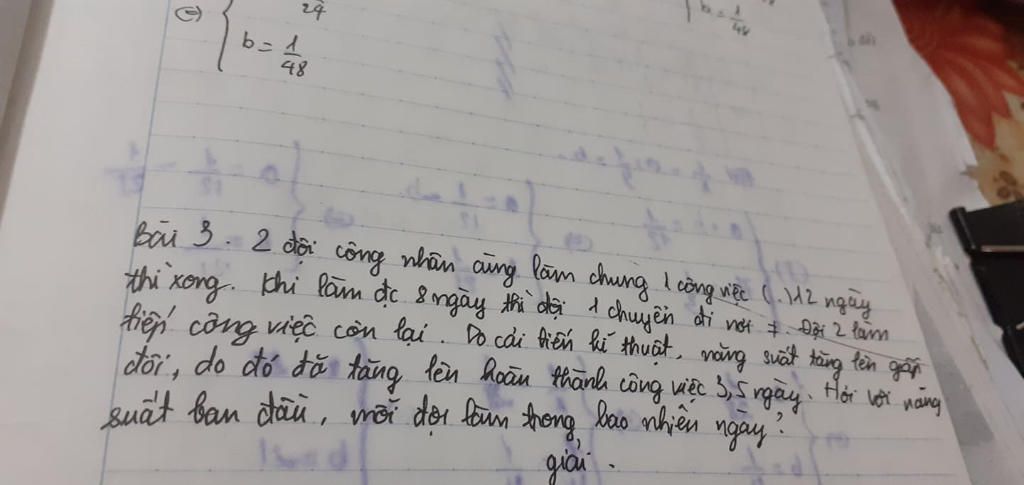 24
(=) b = 1/48
b = 1/48
Bài 3. 2 đội công nhân cùng làm chung 1 công việc (.) 12 ngày
thì xong. Khi làm đc 8 ngày thì đội 1 chuyển đi nơi ≠. Đội 2 làm
tiếp công việc còn lại. Do cải tiến kĩ thuật, năng suất tăng lên gấp
đôi, do đó đã tăng lên hoàn thành công việc 3,5 ngày. Hỏi với năng
suất ban đầu, mỗi đội làm trong bao nhiêu ngày?
giải.